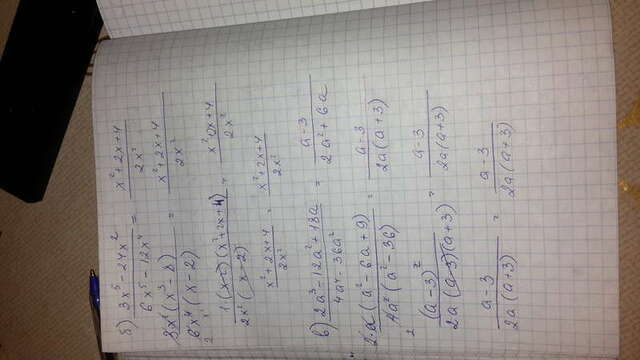 б) 3x⁵ - 24x² / 6x⁵ - 12x⁴ = x² + 2x + 4 / 2x²
3x²(x³ - 8) / 6x⁴(x - 2) = x² + 2x + 4 / 2x²
2
1(x-2)(x²+2x+4) / 2x²(x-2) = x² 2x + 4 / 2x²
x² + 2x + 4 / 2x² = x² + 2x + 4 / 2x²
в) 2a³ - 12a² + 18a / 4a⁴ - 36a² = a - 3 / 2a² + 6a
2a(a² - 6a + 9) / 4a²(a² - 36) = a - 3 / 2a(a+3)
2
(a-3)² / 2a(a-3)(a+3) = a - 3 / 2a(a+3)
a - 3 / 2a(a+3) = a - 3 / 2a(a+3)